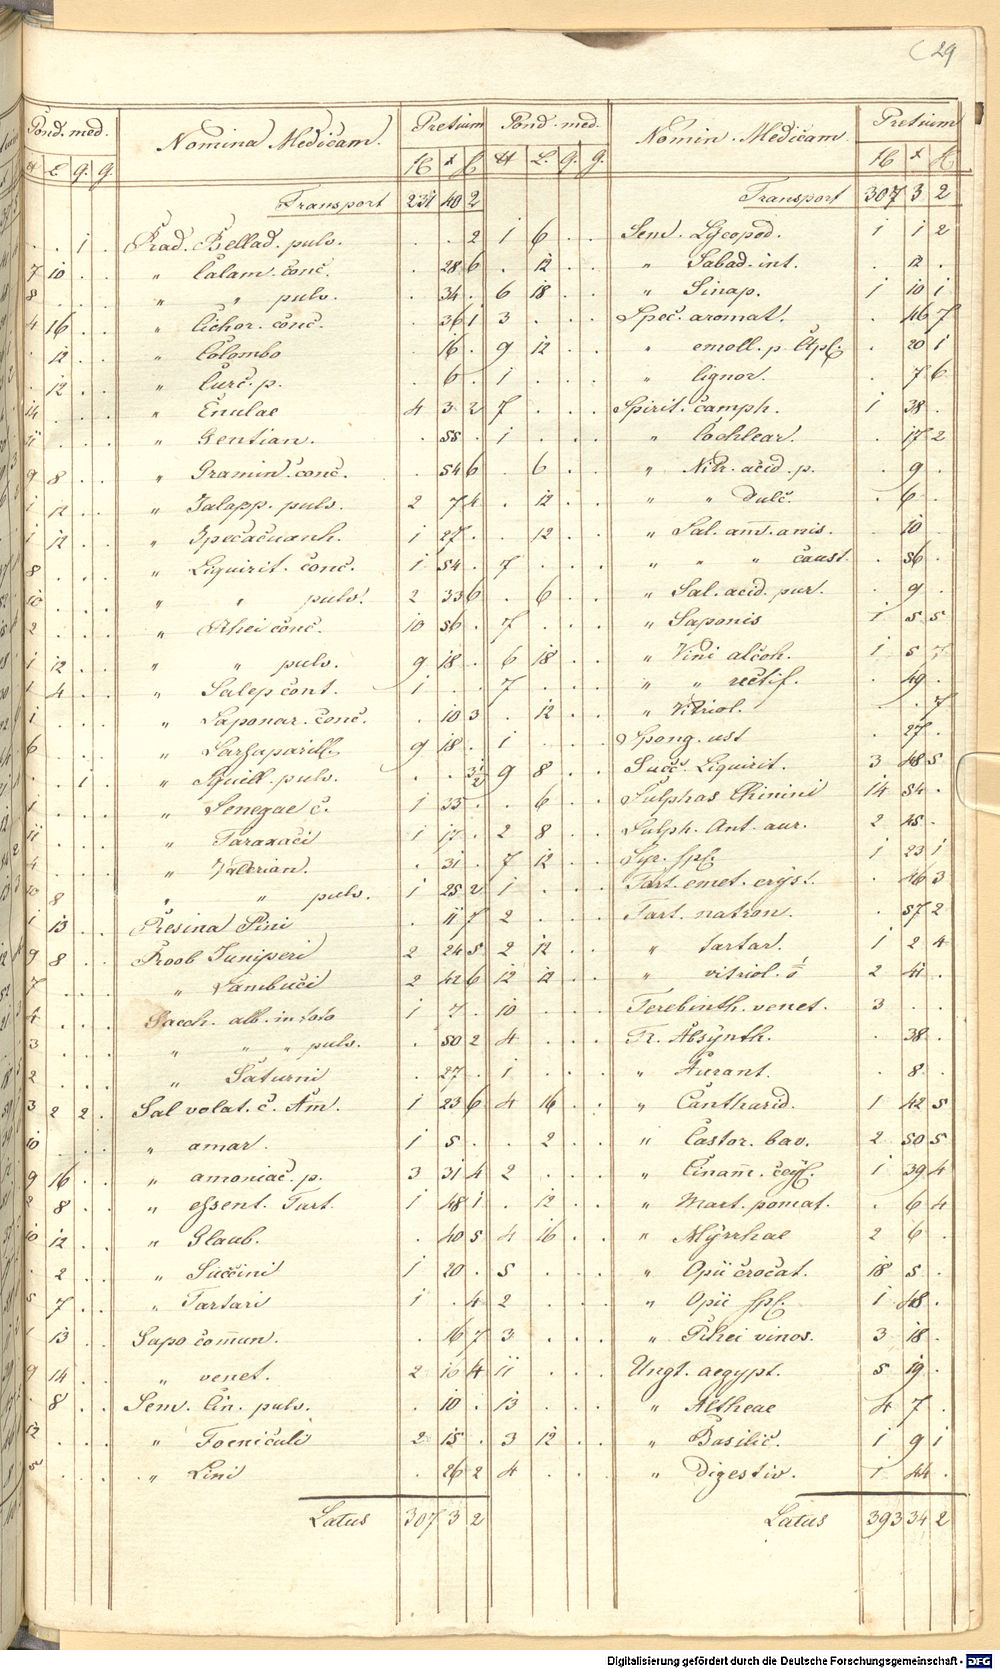 29
Pond. med. Nomina Medicam. Pretium
Transport 237 40 2
. . 1 . Rad. Bellad. pulv. . . 2
7 10 . . " Calam. conc. . 28 6
8 . . . " " pulv. . 34 .
4 16 . . " Cichor. conc. . 36 1
. 12 . . " Colombo . 16 .
. 12 . . " Curc. p. . 6 .
14 . . . " Enulae 4 3 2
11 . . . " Gentian. . 55 .
9 8 . . " Gramin. conc. . 54 6
1 12 . . " Jalapp. pulv. 2 7 4
1 12 . . " Ipecacuanh. 1 27 .
8 . . . " Liquirit. conc. 1 54 .
10 . . . " " pulv. 2 33 6
2 . . . " Rhei conc. 10 56 .
1 12 . . " " pulv. 9 18 .
1 4 . . " Salep cont. 1 . .
1 . . . " Saponar. conc. . 10 3
6 . . . " Sarsaparill. 9 18 .
. . 1 . " Squill. pulv. . . 3½
1 . . . " Senegae c. 1 35 .
11 . . . " Taraxaci 1 17 .
4 . . . " Valerian. . 31 .
10 8 . . " " pulv. 1 25 2
1 13 . . Resina Pini . 11 7
9 8 . . Roob Juniperi 2 24 5
7 . . . " Sambuci 2 42 6
4 . . . Sacch. alb. in toto 1 7 .
3 . . . " " " pulv. . 50 2
2 . . . " Saturni . 27 .
3 2 2 . Sal volat. c. Am. 1 23 6
10 . . . " amar. 1 5 .
9 16 . . " amoniac. p. 3 31 4
2 8 . . " essent. Tart. 1 48 1
10 12 . . " Glaub. . 40 5
. 2 . . " Succini 1 20 .
5 7 . . " Tartari 1 . 4
1 13 . . Sapo comun. . 16 7
9 14 . . " venet. 2 10 4
. 8 . . Sem. Cin. pulv. . 10 .
12 . . . " Foeniculi 2 15 .
5 . . . " Lini . 26 2
Latus 307 3 2
Pond. med. Nomin. Medicam. Pretium
Transport 307 3 2
1 6 . . Sem. Lycopod. 1 1 2
. 12 . . " Sabad. int. . 12 .
6 18 . . " Sinap. 1 10 1
3 . . . Spec. aromat. . 46 7
9 12 . . " emoll. p. Ctpl. . 20 1
1 . . . " lignor. . 7 6
7 . . . Spirit. camph. 1 38 .
1 . . . " Cochlear. . 17 2
. 6 . . " Nitr. acid. p. . 9 .
. 12 . . " " dulc. . 6 .
. 12 . . " Sal. am. anis. . 10 .
7 . . . " " " caust. . 56 .
. 6 . . " Sal. acid. pur. . 9 .
7 . . . " Saponis 1 5 5
6 18 . . " Vini alcoh. 1 5 7
7 . . . " " rectif. . 49 .
. 12 . . " Vitriol. . . 7
1 . . . Spong. ust . 27 .
9 8 . . Succ. Liquirit. 3 48 5
. 6 . . Sulphas Chinini 14 54 .
2 8 . . Sulph. Ant. aur. 2 45 .
7 12 . . Syr. spl. 1 23 1
1 . . . Tart. emet. cryst. . 46 3
2 . . . Tart. natron. . 57 2
2 12 . . " tartar. 1 2 4
12 12 . . " vitriol. 2 41 .
10 . . . Terebinth. venet. 3 . .
4 . . . Tr. Absynth. . 38 .
1 . . . " Aurant. . 8 .
4 16 . . " Cantharid. 1 42 5
. 2 . . " Castor. bav. 2 50 5
2 . . . " Cinam. ceyl. 1 39 4
. 12 . . " Mart. pomat. . 6 4
4 16 . . " Myrrhae 2 6 .
5 . . . " Opii crocat. 18 5 .
2 . . . " Opii spl. 1 48 .
3 . . . " Rhei vinos. 3 18 .
11 . . . Ungt. aegypt. 5 19 .
13 . . . " Altheae 4 7 .
3 12 . . " Basilic. 1 9 1
4 . . . " Digestiv. 1 44 .
Latus 393 34 2
Digitalisierung gefördert durch die Deutsche Forschungsgemeinschaft - DFG